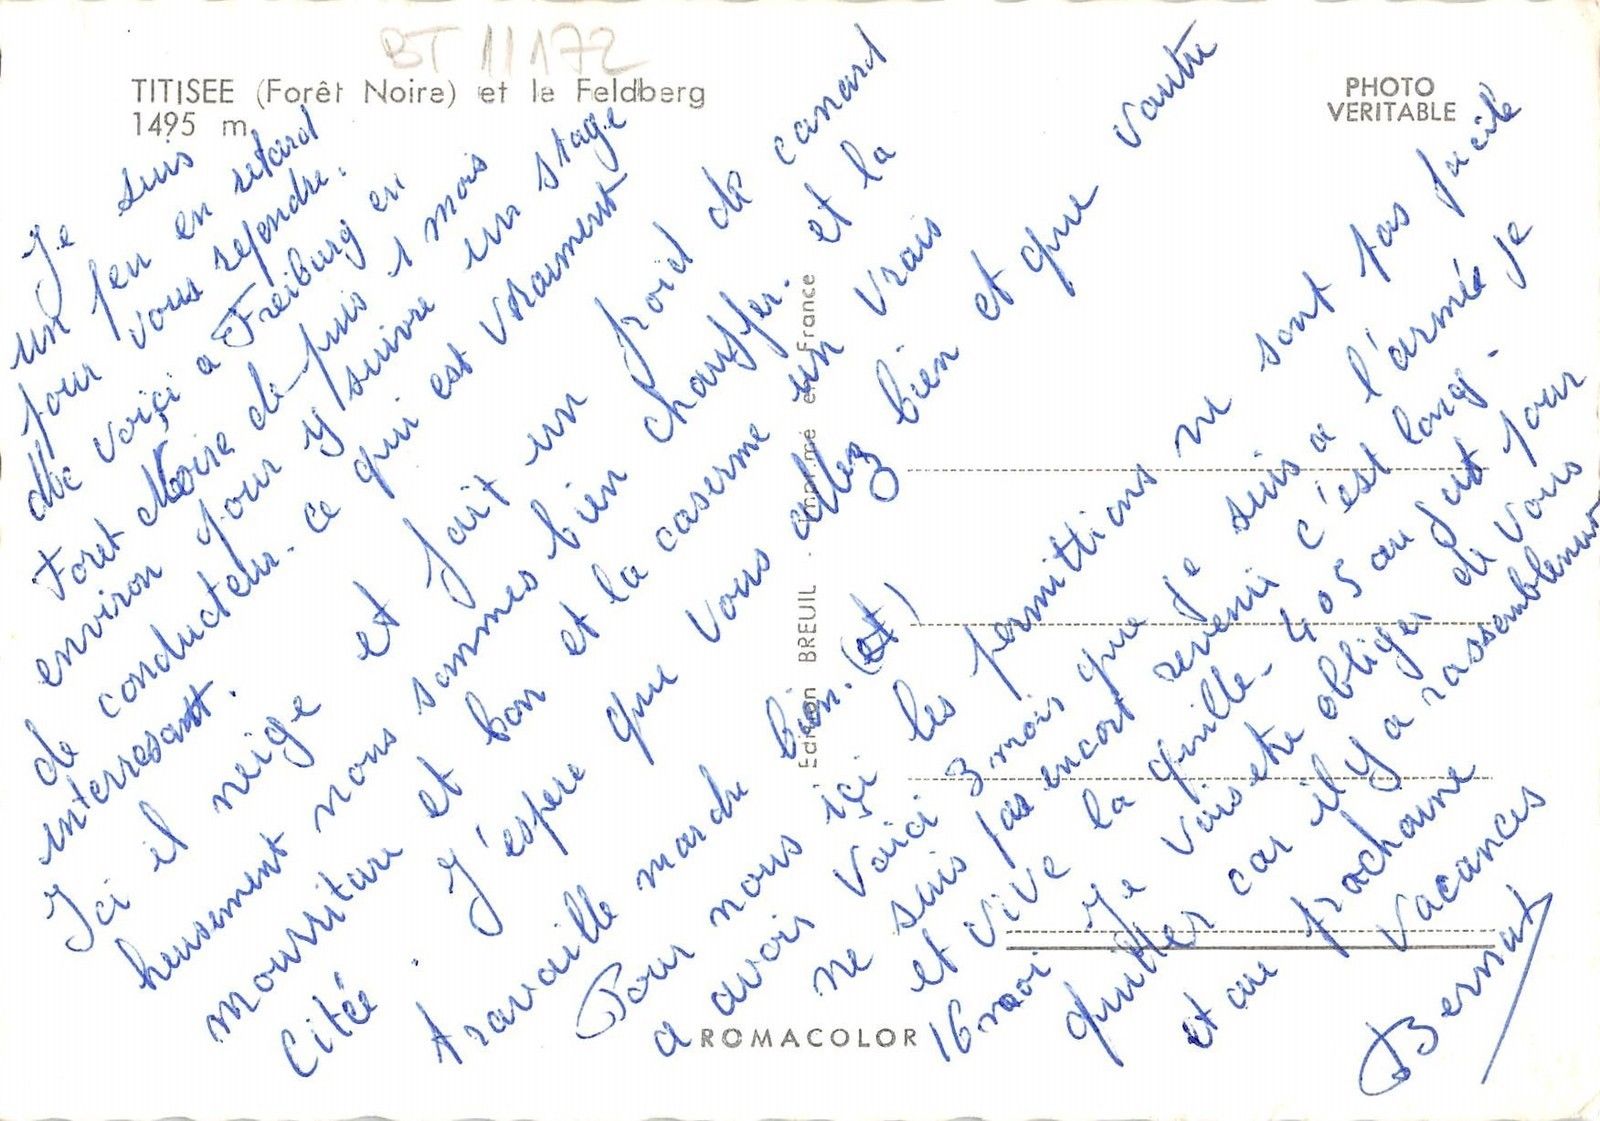 BT 11172
TITISEE (Forêt Noire) et le Feldberg
1495 m.
PHOTO
VERITABLE
Je suis
un peu en retard
pour vous repondre.
dnc voiçi a Freiburg en
Foret Noire de puis 1 mois
environ pour y suivre un stage
de conducteur. ce qui est vraiment
interresant.
Ici il neige et fait un froid de canard
heusement nous sommes bien chauffer. et la
nourriture et bon et la caserme un vrais
citée. J'espere que vous allez bien et que vautre
travaille marche bien. (et)
Pour nous içi les permittions ne sont pas facile
a avoir voici 3 mois que je suis a l'armée je
ne suis pas encort revenu c'est long.
et vive la quille. 405 au jut pour
16 moi Je vais etre obliger de vous
quitter car il y a rassemblement
et au prochaine
vacances
Bernat
Edition BREUIL - Imprimé en France
ROMACOLOR